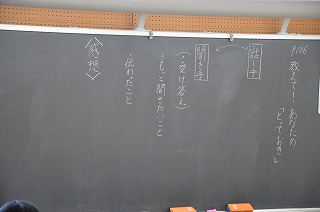 P106 教えて！あなたの
「とっておき」
話し手
聞き手
(・受け答え)
・もっと聞きたいこと
・伝わったこと
〈感想〉